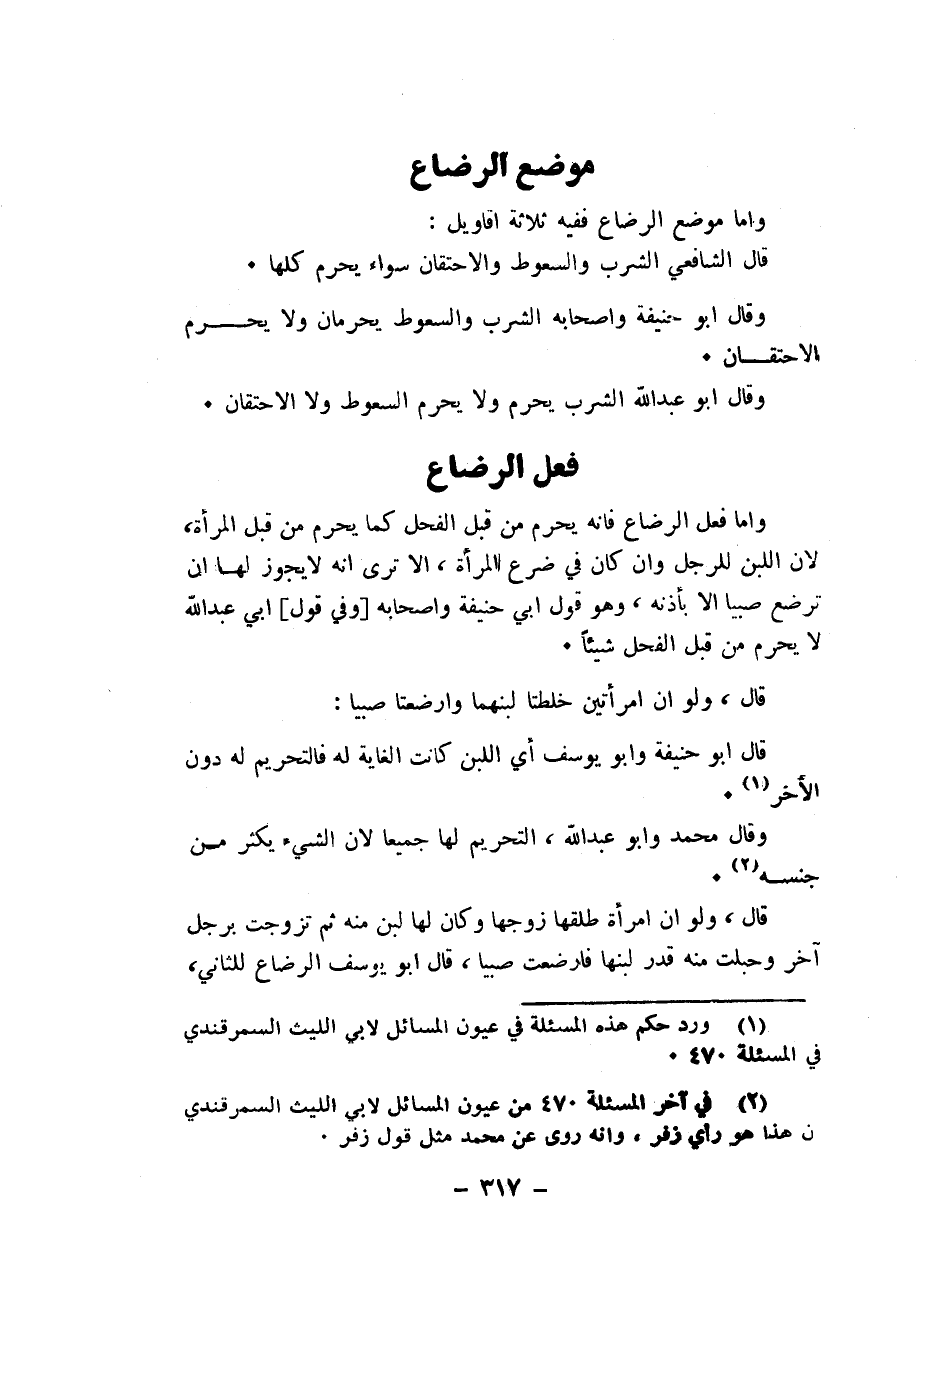 موضع الرضاع
واما موضع الرضاع ففيه ثلاثة اقاويل :
قال الشافعي الشرب والسعوط والاحتقان سواء يحرم كلها ٠
وقال ابو حنيفة واصحابه الشرب والسعوط يحرمان ولا يحـــرم
الاحتقـــان ٠
وقال ابو عبدالله الشرب يحرم ولا يحرم السعوط ولا الاحتقان ٠
فعل الرضاع
واما فعل الرضاع فانه يحرم من قبل الفحل كما يحرم من قبل المرأة،
لان اللبن للرجل وان كان في ضرع المرأة ، الا ترى انه لايجوز لهـا ان
ترضع صبيا الا بأذنه ، وهو قول ابي حنيفة واصحابه [وفي قول] ابي عبدالله
لا يحرم من قبل الفحل شيئاً ٠
قال ، ولو ان امرأتين خلطتا لبنهما وارضعتا صبيا :
قال ابو حنيفة وابو يوسف أي اللبن كانت الغاية له فالتحريم له دون
الأخر(١) ٠
وقال محمد وابو عبدالله ، التحريم لها جميعا لان الشيء يكثر مـن
جنســه(٢) ٠
قال ، ولو ان امرأة طلقها زوجها وكان لها لبن منه ثم تزوجت برجل
آخر وحبلت منه قدر لبنها فارضعت صبيا ، قال ابو يوسف الرضاع للثاني،
(١) ورد حكم هذه المسئلة في عيون المسائل لابي الليث السمرقندي
في المسئلة ٤٧٠ ٠
(٢) في آخر المسئلة ٤٧٠ من عيون المسائل لابي الليث السمرقندي
ن هذا هو رأي زفر ، وانه روى عن محمد مثل قول زفر ٠
– ٣١٧ –